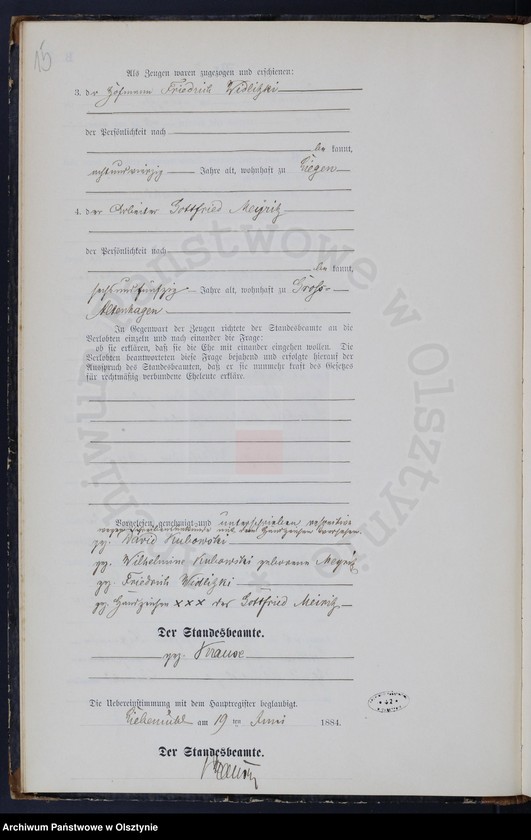 15
Als Zeugen waren zugezogen und erschienen:
3. der Hofmann Friedrich Widlitzki
der Persönlichkeit nach
be kannt,
achtundvierzig Jahre alt, wohnhaft zu Ziegen
4. der Arbeiter Gottfried Meyritz
der Persönlichkeit nach
be kannt,
sechsundfünfzig Jahre alt, wohnhaft zu Gross-
Altenhagen
In Gegenwart der Zeugen richtete der Standesbeamte an die
Verlobten einzeln und nach einander die Frage:
ob sie erklären, daß sie die Ehe mit einander eingehen wollen. Die
Verlobten beantworteten diese Frage bejahend und erfolgte hierauf der
Ausspruch des Standesbeamten, daß er sie nunmehr kraft des Gesetzes
für rechtmäßig verbundene Eheleute erkläre.
Vorgelesen, genehmigt und unterschrieben respective
wegen mit dem Handzeichen versehen.
gz. David Kukowski
gz. Wilhelmine Kukowski geborene Meyritz
gz. Friedrich Widlitzki
gz. Handzeichen xxx des Gottfried Meiritz
Der Standesbeamte.
gz. Krause
Die Uebereinstimmung mit dem Hauptregister beglaubigt.
Liebemühl am 19 ten Juni 1884.
Der Standesbeamte.
Krause
Archiwum Państwowe w Olsztynie
Archiwum Państwowe w Olsztynie